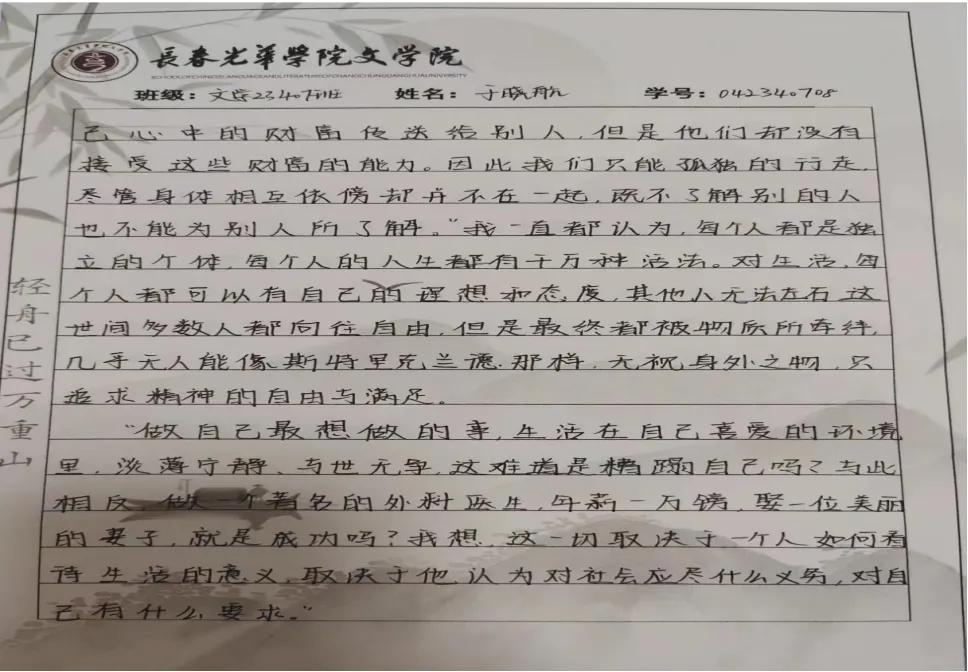 長春光華學院文学院
SCHOOLOFCHINGSELANGUAGEANDLITERATEREOFCHANGCHUNGUANGHUAUNIVERSITY
班级：文学23407班 姓名：于晓航 学号：042340708
己心中的财富传送给别人，但是他们却没有
接受这些财富的能力。因此我们只能孤独的行走，
尽管身体相互依傍却并不在一起，既不了解别的人
也不能为别人所了解。”我一直都认为，每个人都是独
立的个体，每个人的人生都有千万种活法。对生活，每
个人都可以有自己的理想和态度，其他人无法左右，这
世间多数人都向往自由，但是最终都被物质所牵绊，
几乎无人能像斯特里克兰德那样，无视身外之物，只
追求精神的自由与满足。
“做自己最想做的事，生活在自己喜爱的环境
里，淡薄宁静、与世无争，这难道是糟蹋自己吗？与此
相反，做一个著名的外科医生，年薪一万镑，娶一位美丽
的妻子，就是成功吗？我想，这一切取决于一个人如何看
待生活的意义，取决于他认为对社会应尽什么义务，对自
己有什么要求。”
轻舟已过万重山